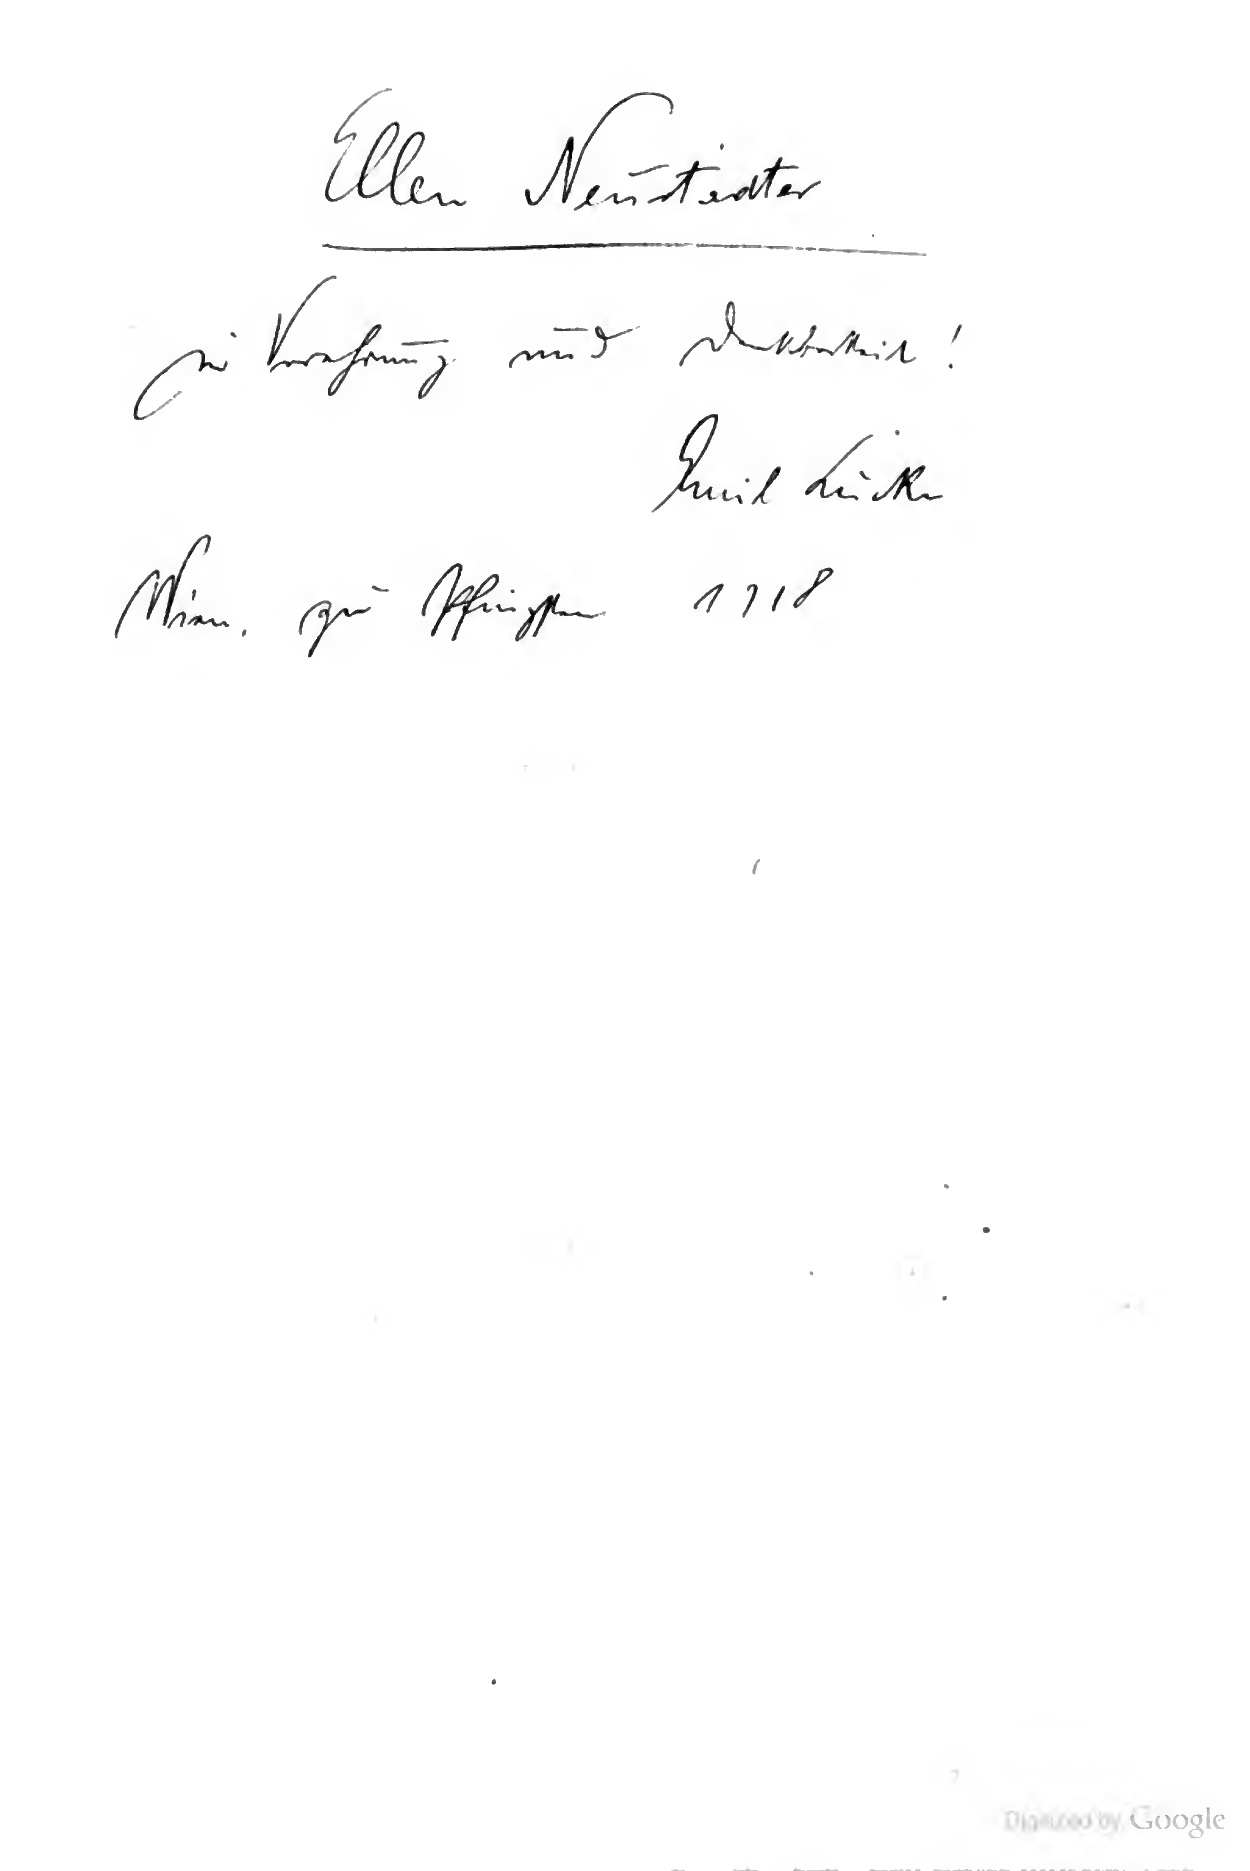 Ellen Neustedter
in Verehrung und Dankbarkeit!
Emil Lucka
Wien, zu Pfingsten 1918
Digitized by Google